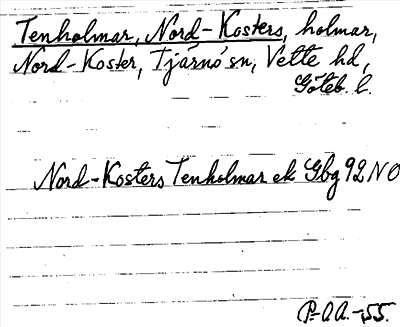 Tenholmar, Nord-Kosters, holmar,
Nord-Koster, Tjärnö sn, Vette hd,
Göteb. l.
Nord-Kosters Tenholmar ek Gbg 92 NO
P.A.-55.